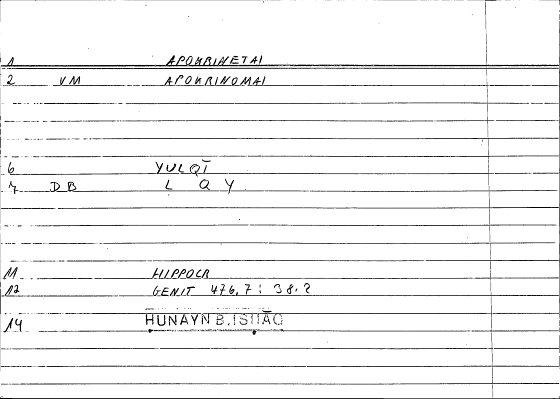 1 APOKRINETAI
2 VM APOKRINOMAI
6 YULQĪ
7 DB L Q Y
11 HIPPOCR
12 GENIT 476,7 : 38.2
14 ḤUNAYN B. ISḤĀQ